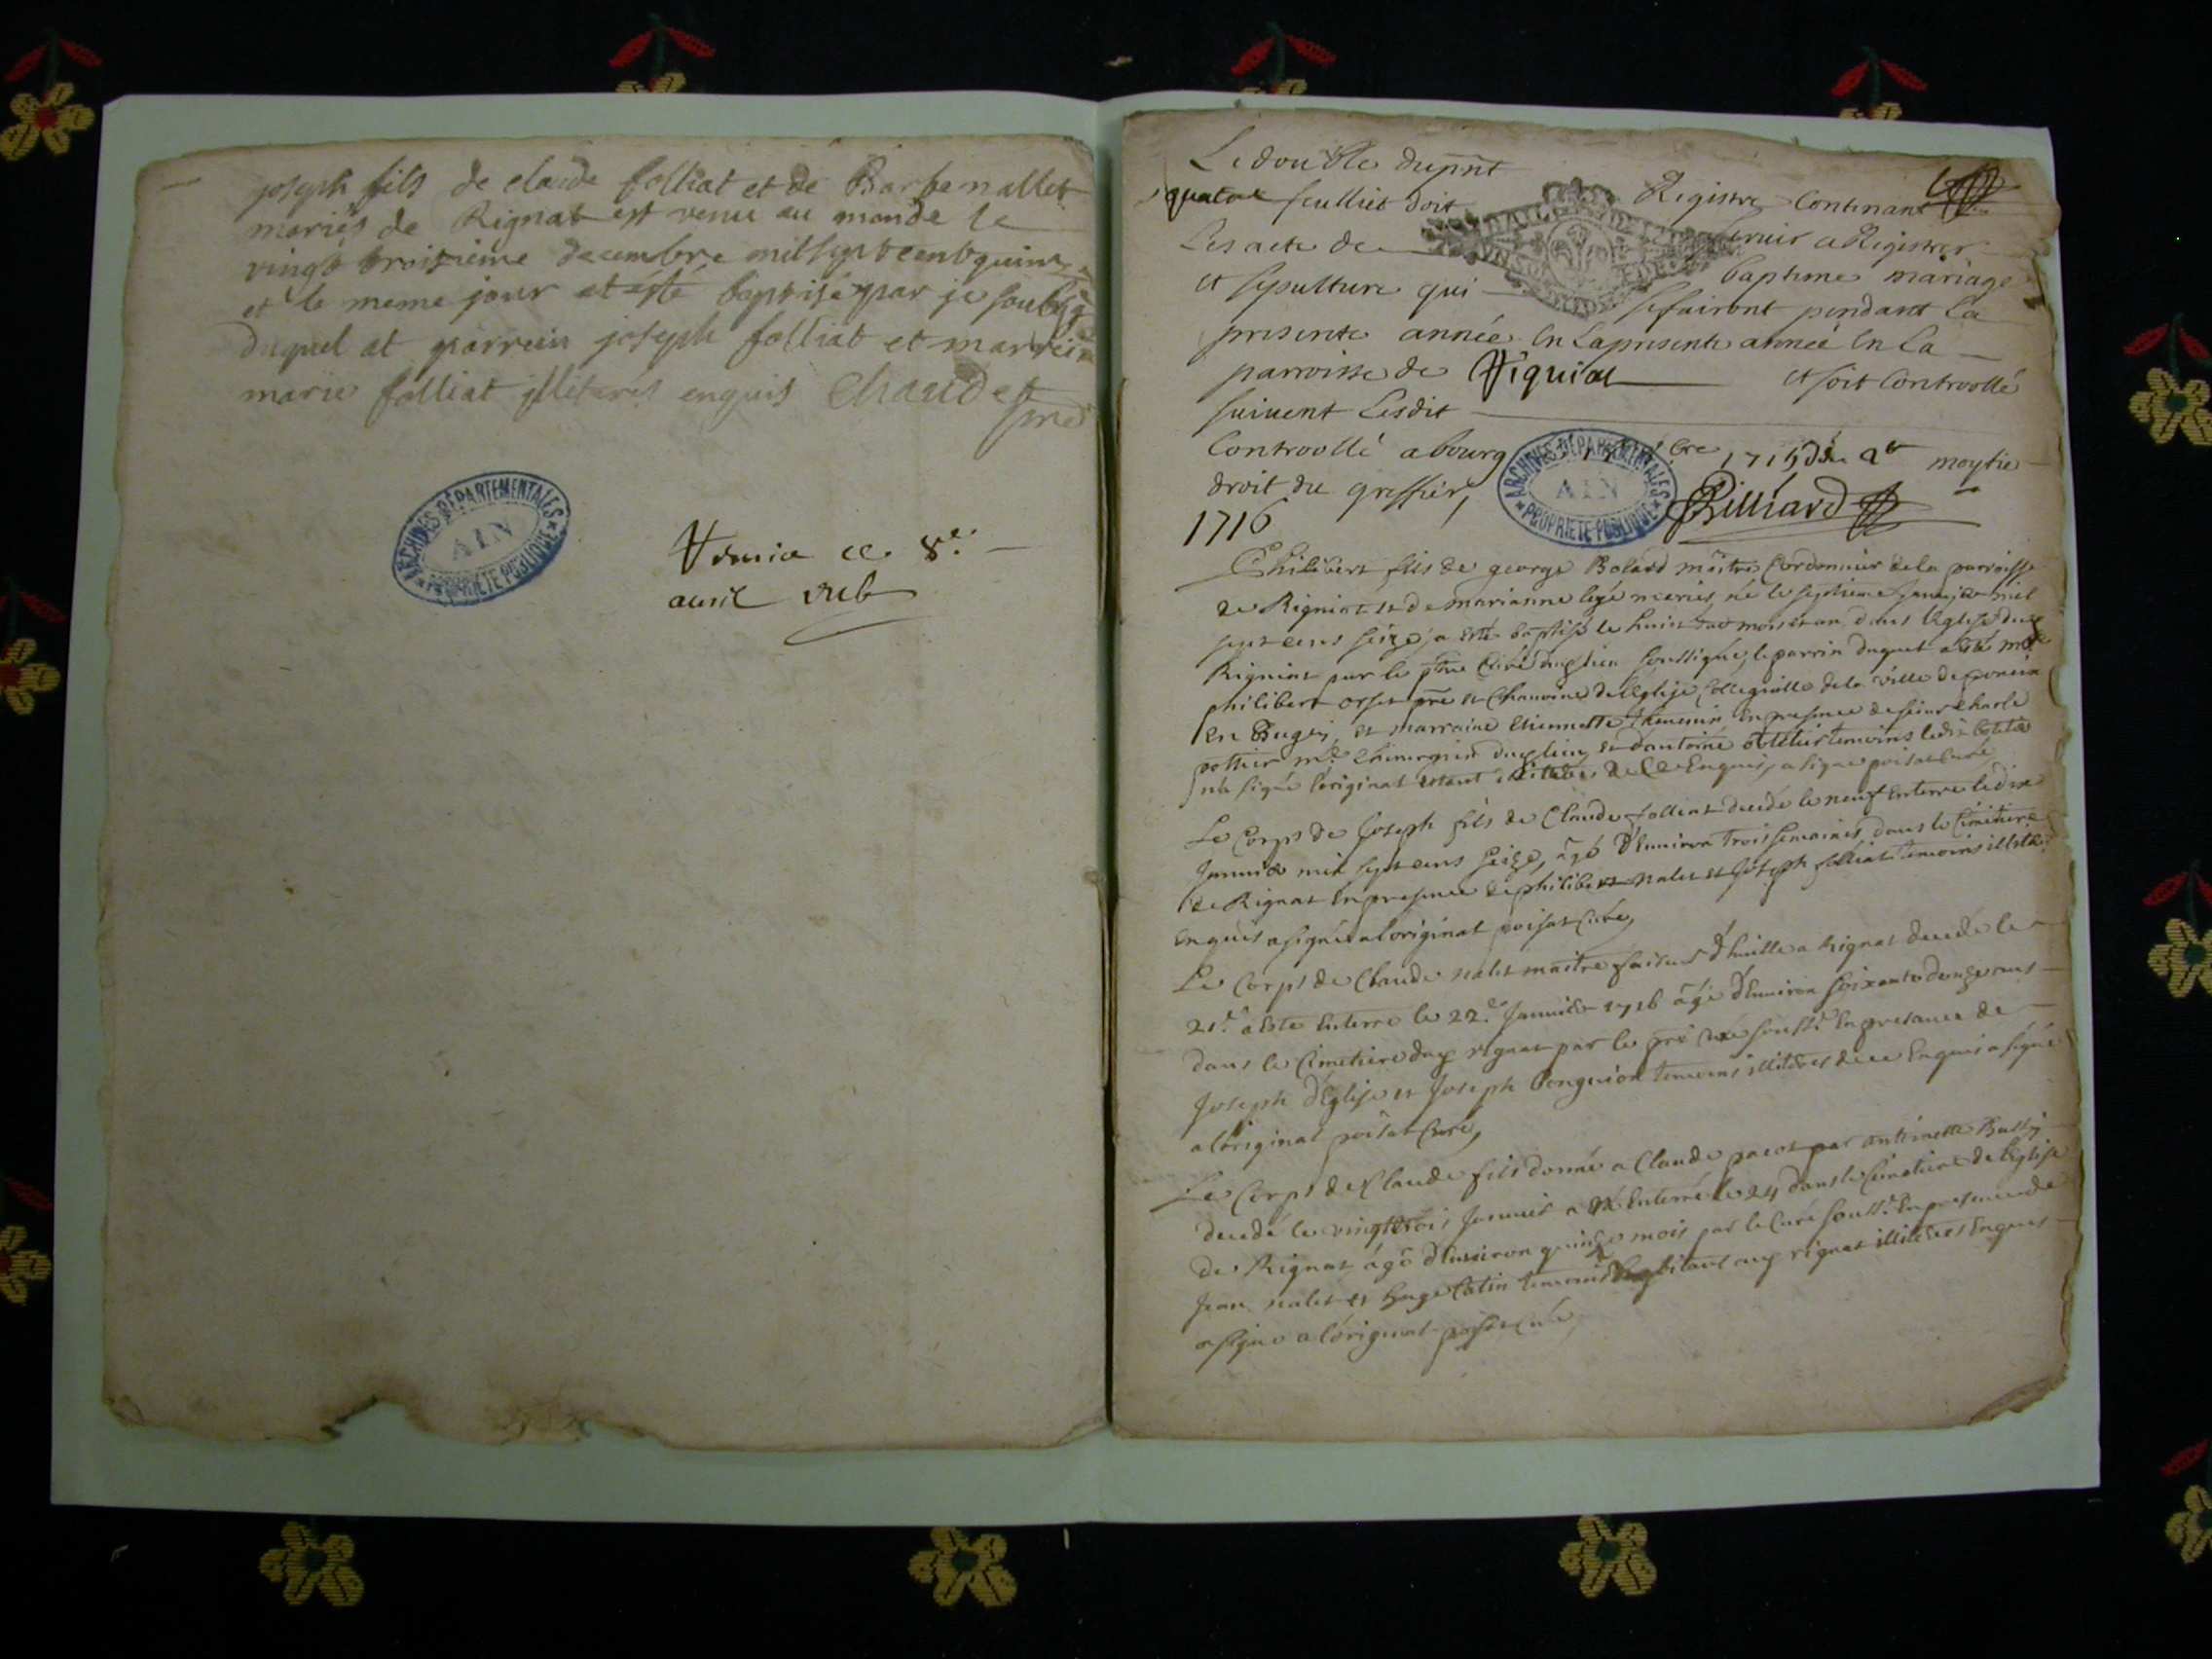 joseph fils de claude folliat et de Barbe nallet
mariés de Rignat est venu au monde le
vingt troisieme decembre mil sept cent quinze
et le meme jour at esté baptisé par je soubsigé
duquel at parrein joseph folliat et marreine
marie folliat illiterés enquis Chaudet
ARCHIVES DÉPARTEMENTALES
AIN
PROPRIÉTÉ PUBLIQUE
ce 8e
auril
Le double du pnt Registre Contenant
quatre feulliet doit seruir a Registrer
Les acte de baptême mariage
et sepulture qui se fairont pendant La
presente année En La presente année En La
parroisse de et soit Controollé
suiuent Lesdit
Controollé a bourg bre 1715 moytié
droit du greffier,
Billiard
ARCHIVES DÉPARTEMENTALES
AIN
PROPRIÉTÉ PUBLIQUE
1716
Philibert fils de george Bolard maître Cordonnier de la parroisse
de Rigniat et de marianne mariés, né le septieme januier mil
sept cens seize, a esté baptisé le huit mois et an, dans l'eglise dud
Rigniat par le ptre Curé dud lieu soussigné, le parrin duquel a esté
philibert orset pre et Chanoine de l'Eglise Collegialle de la ville de
En Bugey, et marraine Etiennette En presence de sieur Charle
dud lieu, et d'antoine temoins
signé l'original enquis, a signé poisat Curé,
Le Corps de Joseph fils de Claude folliat decedé le neuf Enterré le dix
Januier mil sept cens seize, âgé d'Enuiron trois semaines, dans le Cimetiere
de Rignat En presence de philibert nalet et Joseph folliat temoins illiterés
Enquis a signé a l'original poisat Curé,
Le Corps de Claude nalet maitre faiseur d'huille a Rignat decedé le
21e a Esté Enterré le 22e Januier 1716 âgé d'Enuiron soixante douze ans
dans le Cimetiere dud rignat par le pre Curé souss. En presance de
Joseph d'Eglise et Joseph temoins illiterés de ce Enquis a signé
a l'original poisat Curé,
Le Corps de Claude fils donné a Claude pacot par antoinette
decedé le vingt trois Januier a esté Enterré le 24 dans le Cimetiere de l'Eglise
de Rignat âgé d'Enuiron quinze mois par le Curé souss. En presence de
Jean nalet et huge Catin temoins habitant aud rignat illiterés Enquis
a signé a l'original poisat Curé,